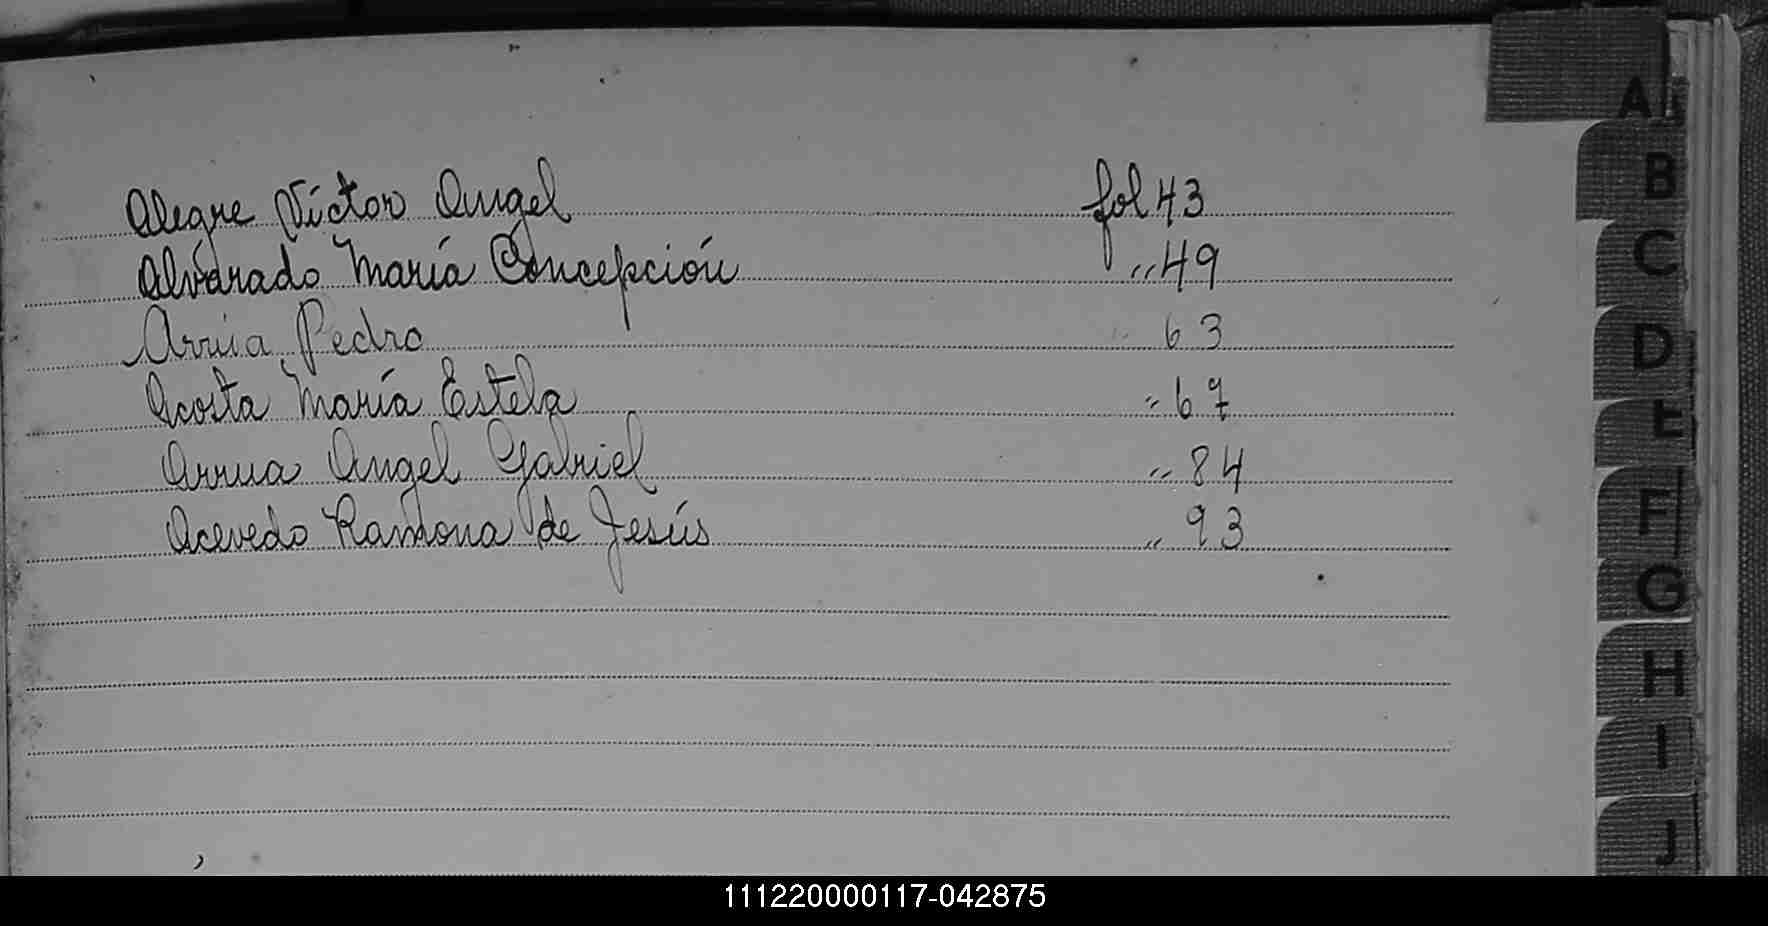 Alegre Víctor Angel fol 43
Alvarado María Concepción " 49
Arrua Pedro " 63
Acosta María Estela " 67
Arrua Angel Gabriel " 84
Acevedo Ramona de Jesús " 93
A
B
C
D
E
F
G
H
I
J
111220000117-042875